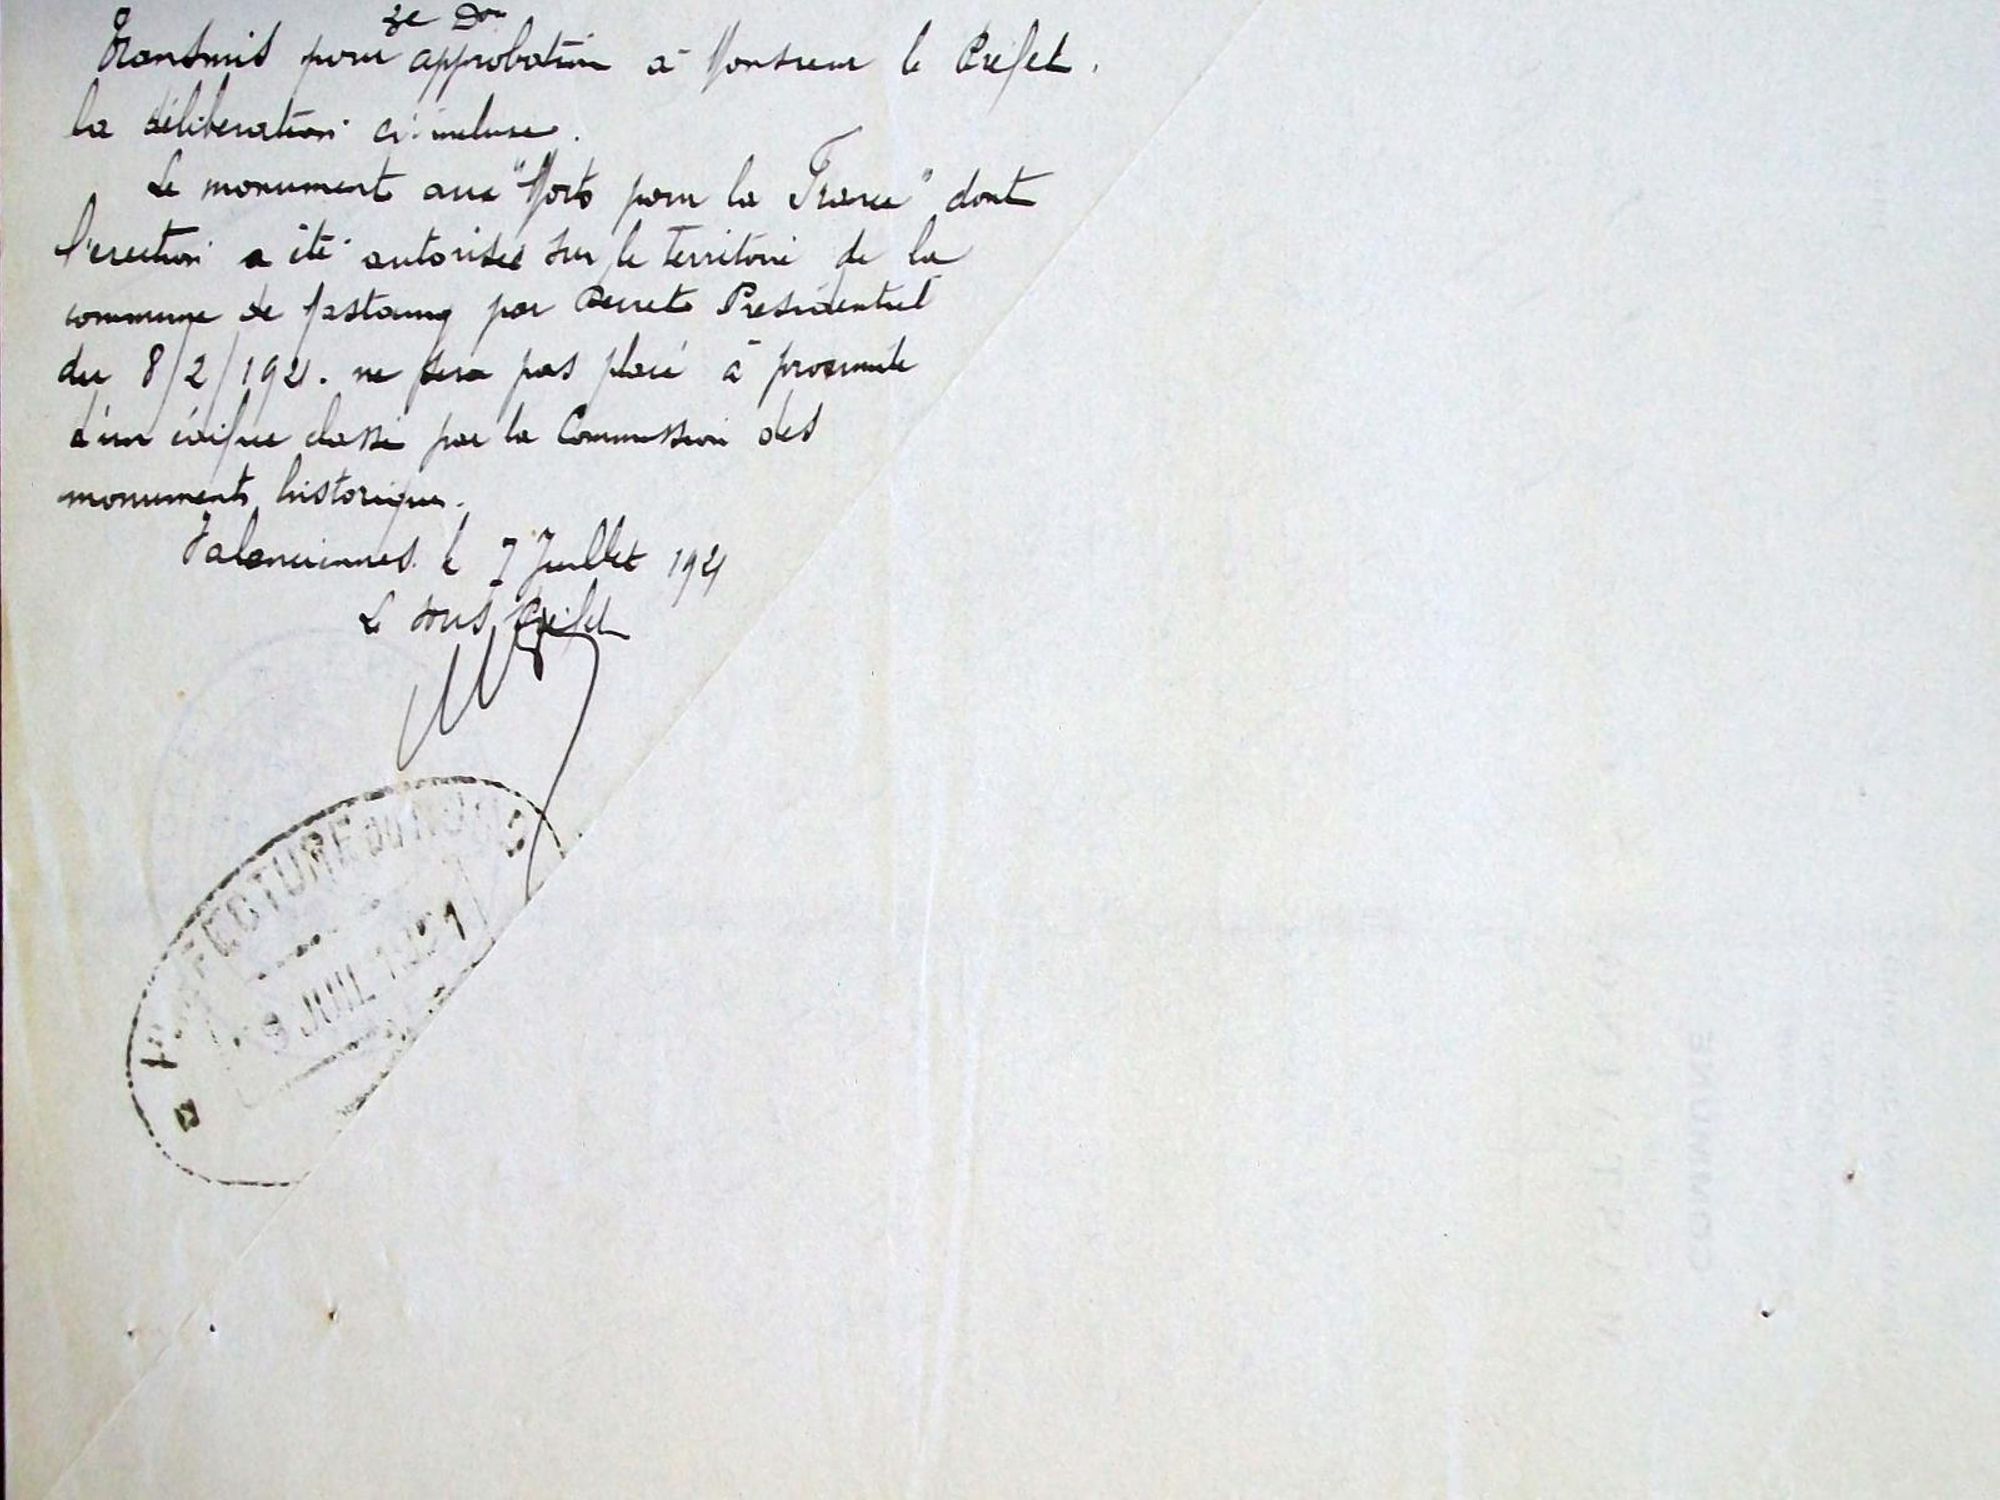 3e Don
Transmis pour approbation à Monsieur le Préfet.
la délibération ci-incluse.
Le monument aux "Morts pour la France" dont
l'erection a été autorisée sur le territoire de la
commune de Mastaing par Decret Presidentiel
du 8/2/1921. ne sera pas placé à proximité
d'un édifice classé par la Commission des
monuments historiques.
Valenciennes le 7 Juillet 1921
Le Sous Préfet
PREFECTURE DU NORD
9 JUIL 1921
COMMUNE